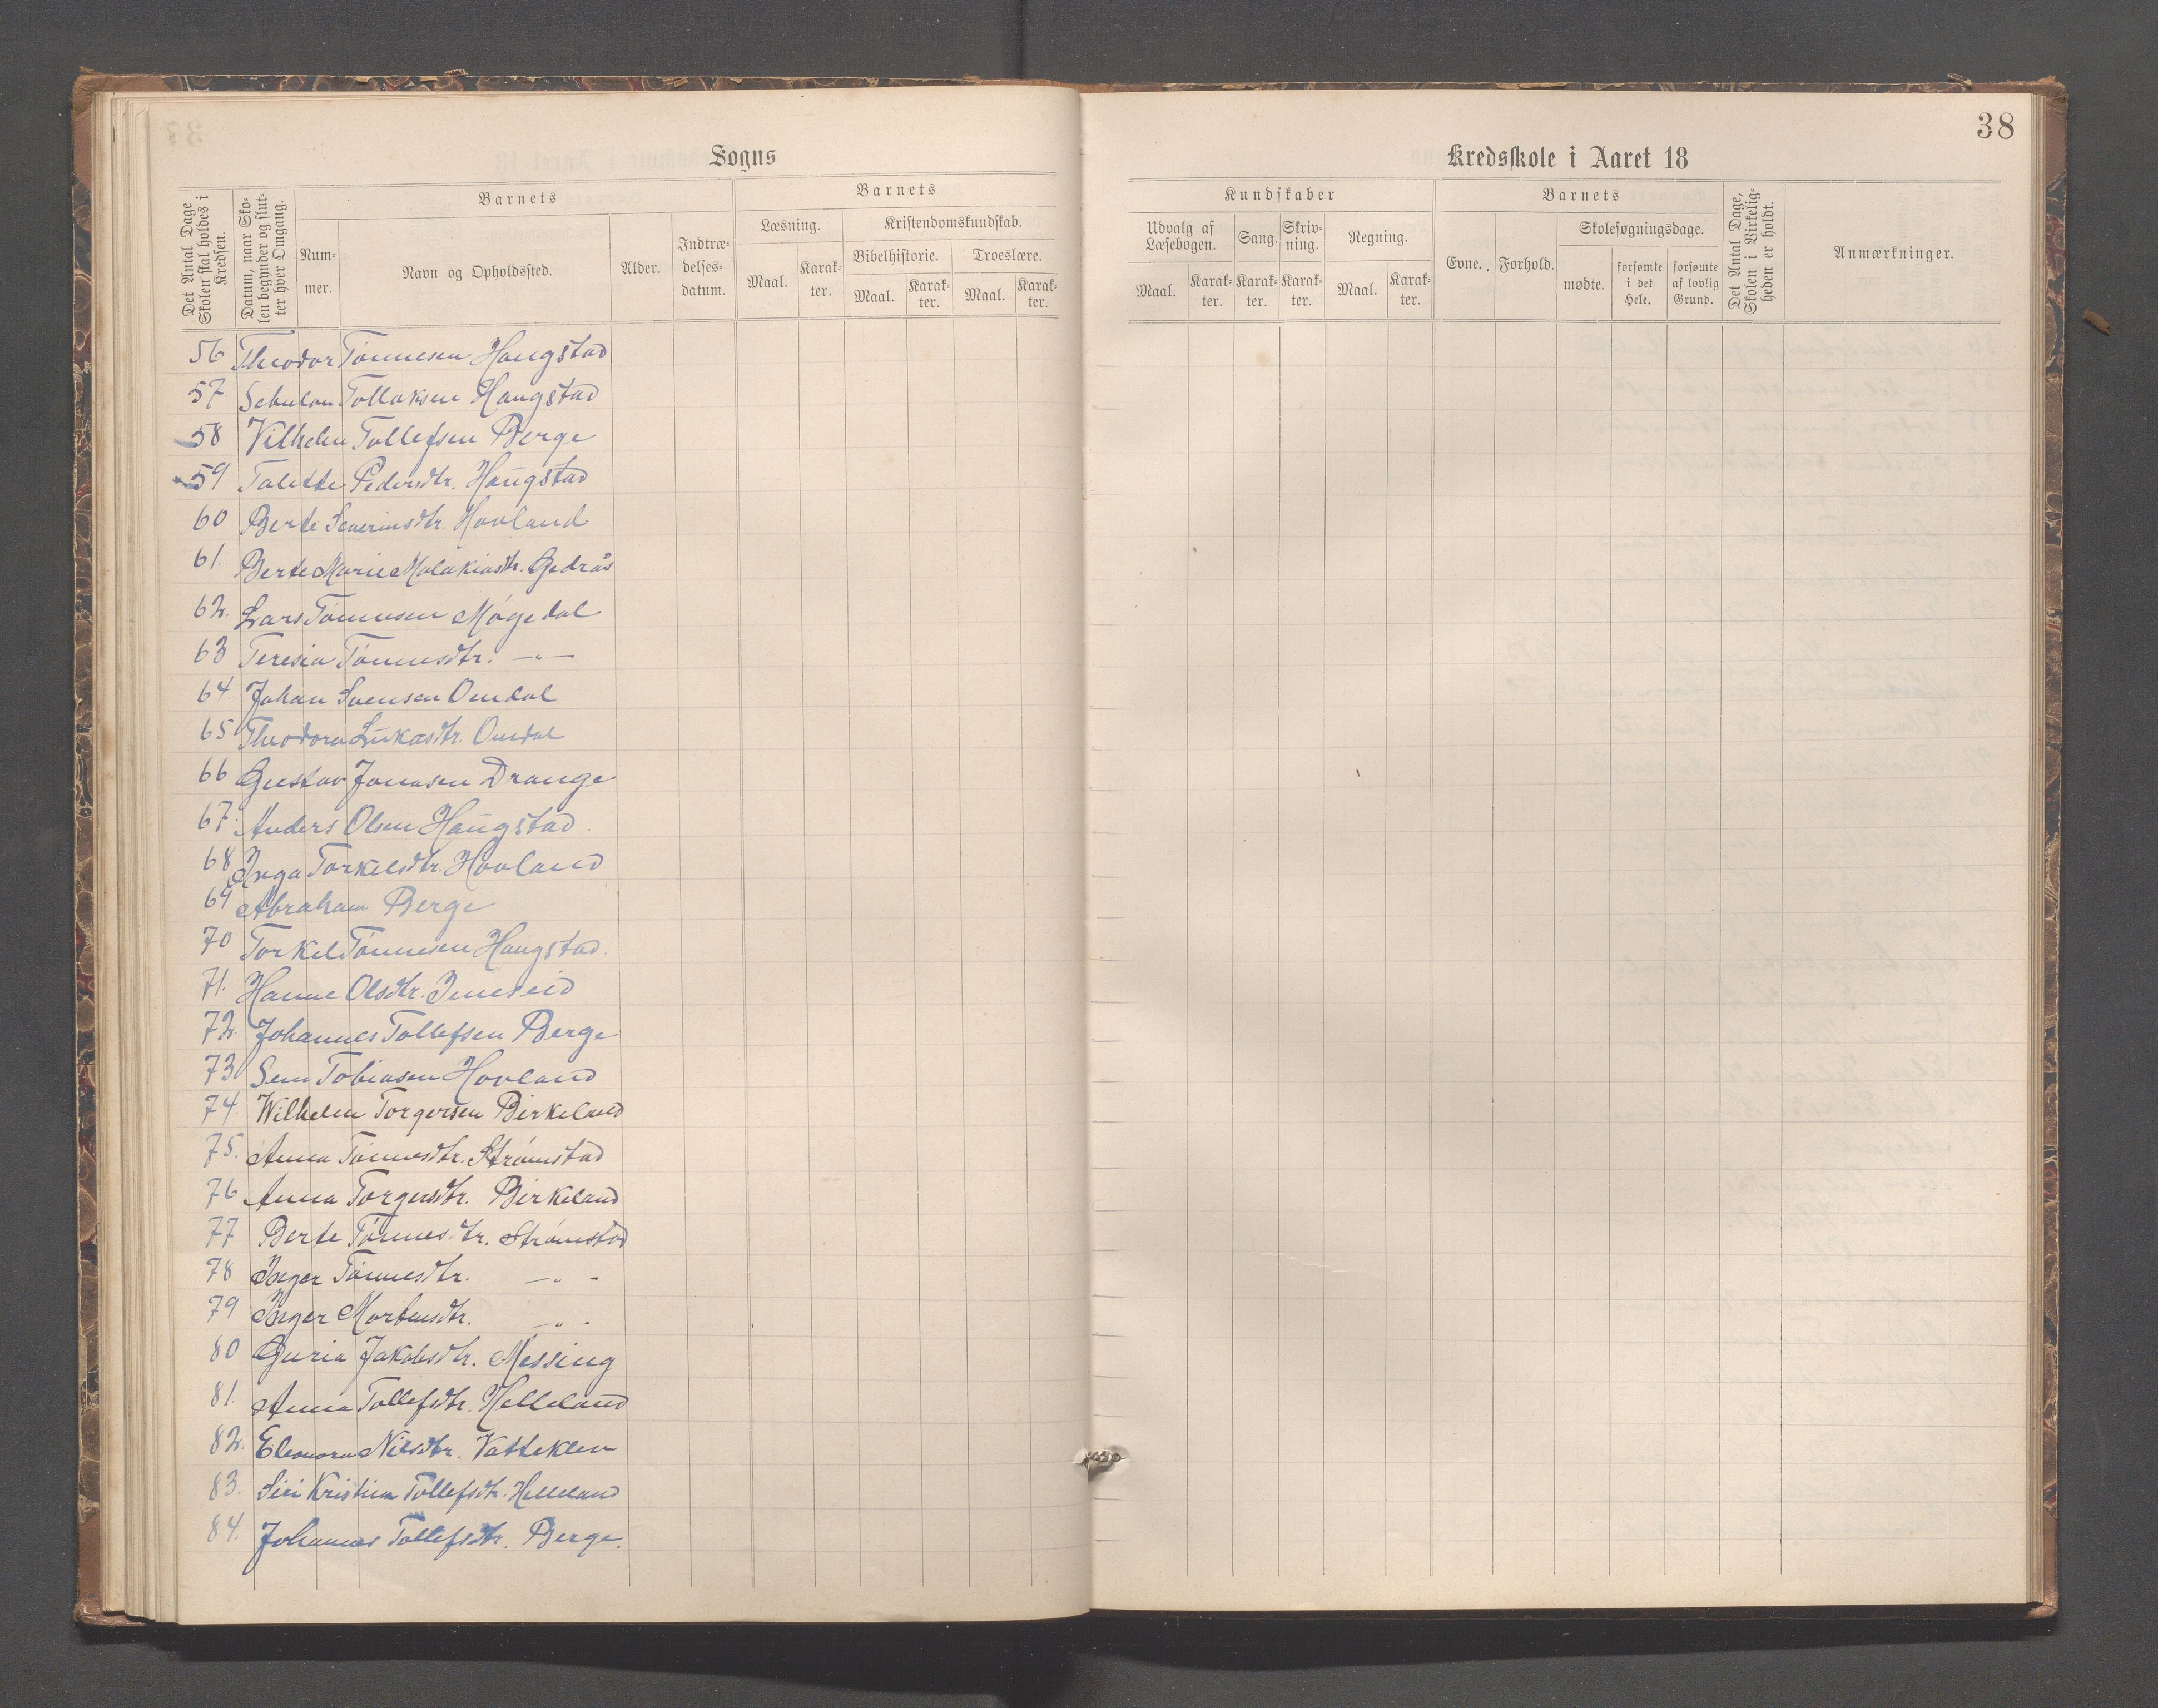 38
Sogns
Kredsskole i Aaret 18
Det Antal Dage Skolen skal holdes i Kredsen.
Datum, naar Skolen begynder og slutter hver Omgang.
Barnets
Nummer.
Navn og Opholdssted.
Alder.
Indtrædelsesdatum.
Barnets
Læsning.
Maal.
Karakter.
Kristendomskundskab.
Bibelhistorie.
Maal.
Karakter.
Troeslære.
Maal.
Karakter.
Kundskaber
Udvalg af Læsebogen.
Maal.
Karakter.
Sang.
Karakter.
Skrivning.
Karakter.
Regning.
Maal.
Karakter.
Barnets
Evne.
Forhold.
Skolesøgningsdage.
mødte.
forsømte i det Hele.
forsømte af lovlig Grund.
Det Antal Dage, Skolen i Virkeligheden er holdt.
Anmærkninger.
56 Theodor Tønnesen Haugstad
57 Sebulon Tollaksen Haugstad
58 Vilhelm Tollefsen Berge
59 Talette Pedersdtr. Haugstad
60 Berte Severinsdtr. Hovland
61. Berte Marie Malakiasdtr. Gjedrås
62. Lars Tønnesen Møgedal
63 Teresia Tønnesdtr. —"—
64 Johan Svensen Omdal
65 Theodora Lukasdtr. Omdal
66 Gustav Jonasen Drange
67. Anders Olsen Haugstad.
68 Inga Torkelsdtr. Hovland
69 Abraham Berge
70 Torkel Tønnesen Haugstad.
71. Hanne Olsdtr. Imeseid
72. Johannes Tollefsen Berge
73 Sem Tobiasen Hovland
74. Wilhelm Torgersen Birkeland
75. Anna Tønnesdtr. Strømstad
76 Anna Torgersdtr. Birkeland
77 Berte Tønnesdtr. Strømstad
78 Inger Tønnesdtr. —"-
79 Inger Mortensdtr. —"-
80 Guria Jakobsdtr. Messing
81. Anna Tollefsdtr. Helleland
82. Eleonora Nilsdtr. Vatteklev
83. Siri Kristina Tollefsdtr. Helleland
84. Johannes Tollefsdtr. Berge.